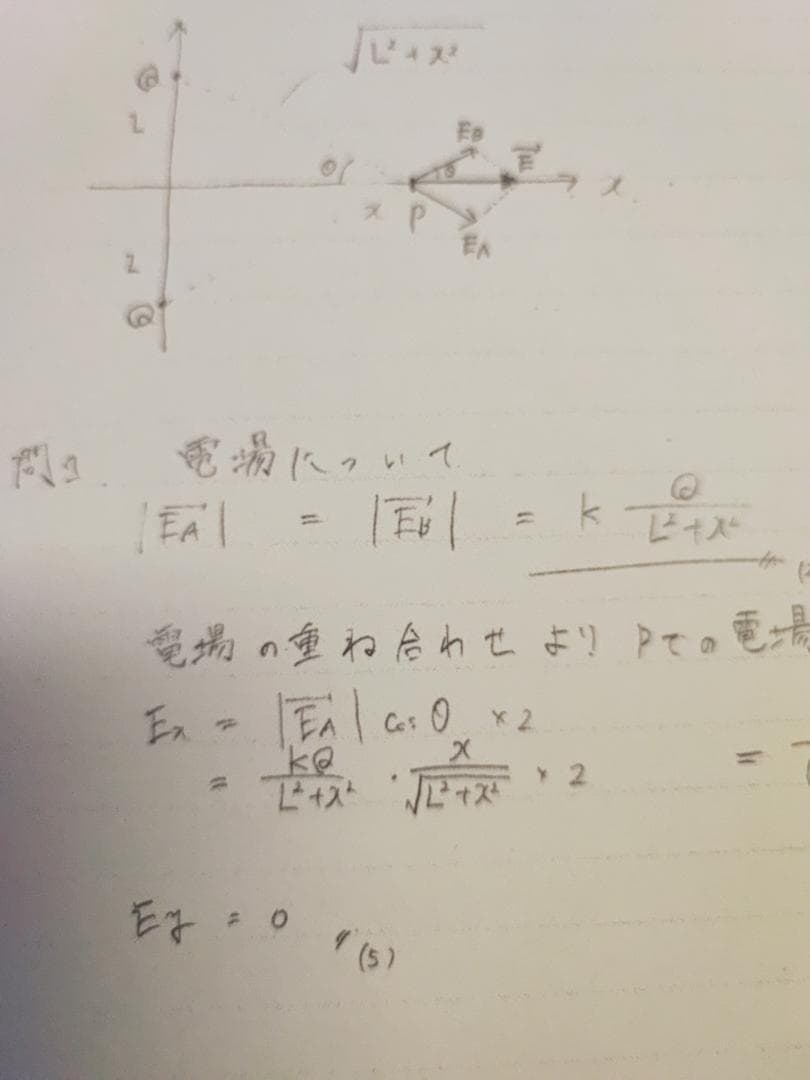 √L²+x²
Q
L
θ
EB
θ
E→
x
x P
EA
L
Q
電場について
|EA→| = |EB→| = k Q/(L²+x²)
電場の重ね合わせより Pでの電場
Ex = |EA→| cos θ × 2
= kQ/(L²+x²) · x/√(L²+x²) × 2 =
Ey = 0 〃(5)